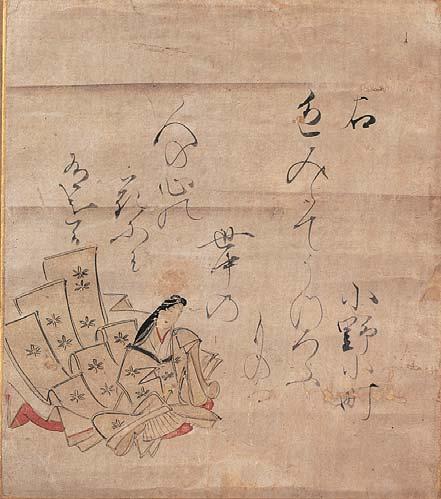 右
小野小町
色みえてうつろふ
ものは
世中の
人の心の
花にそ
有ける